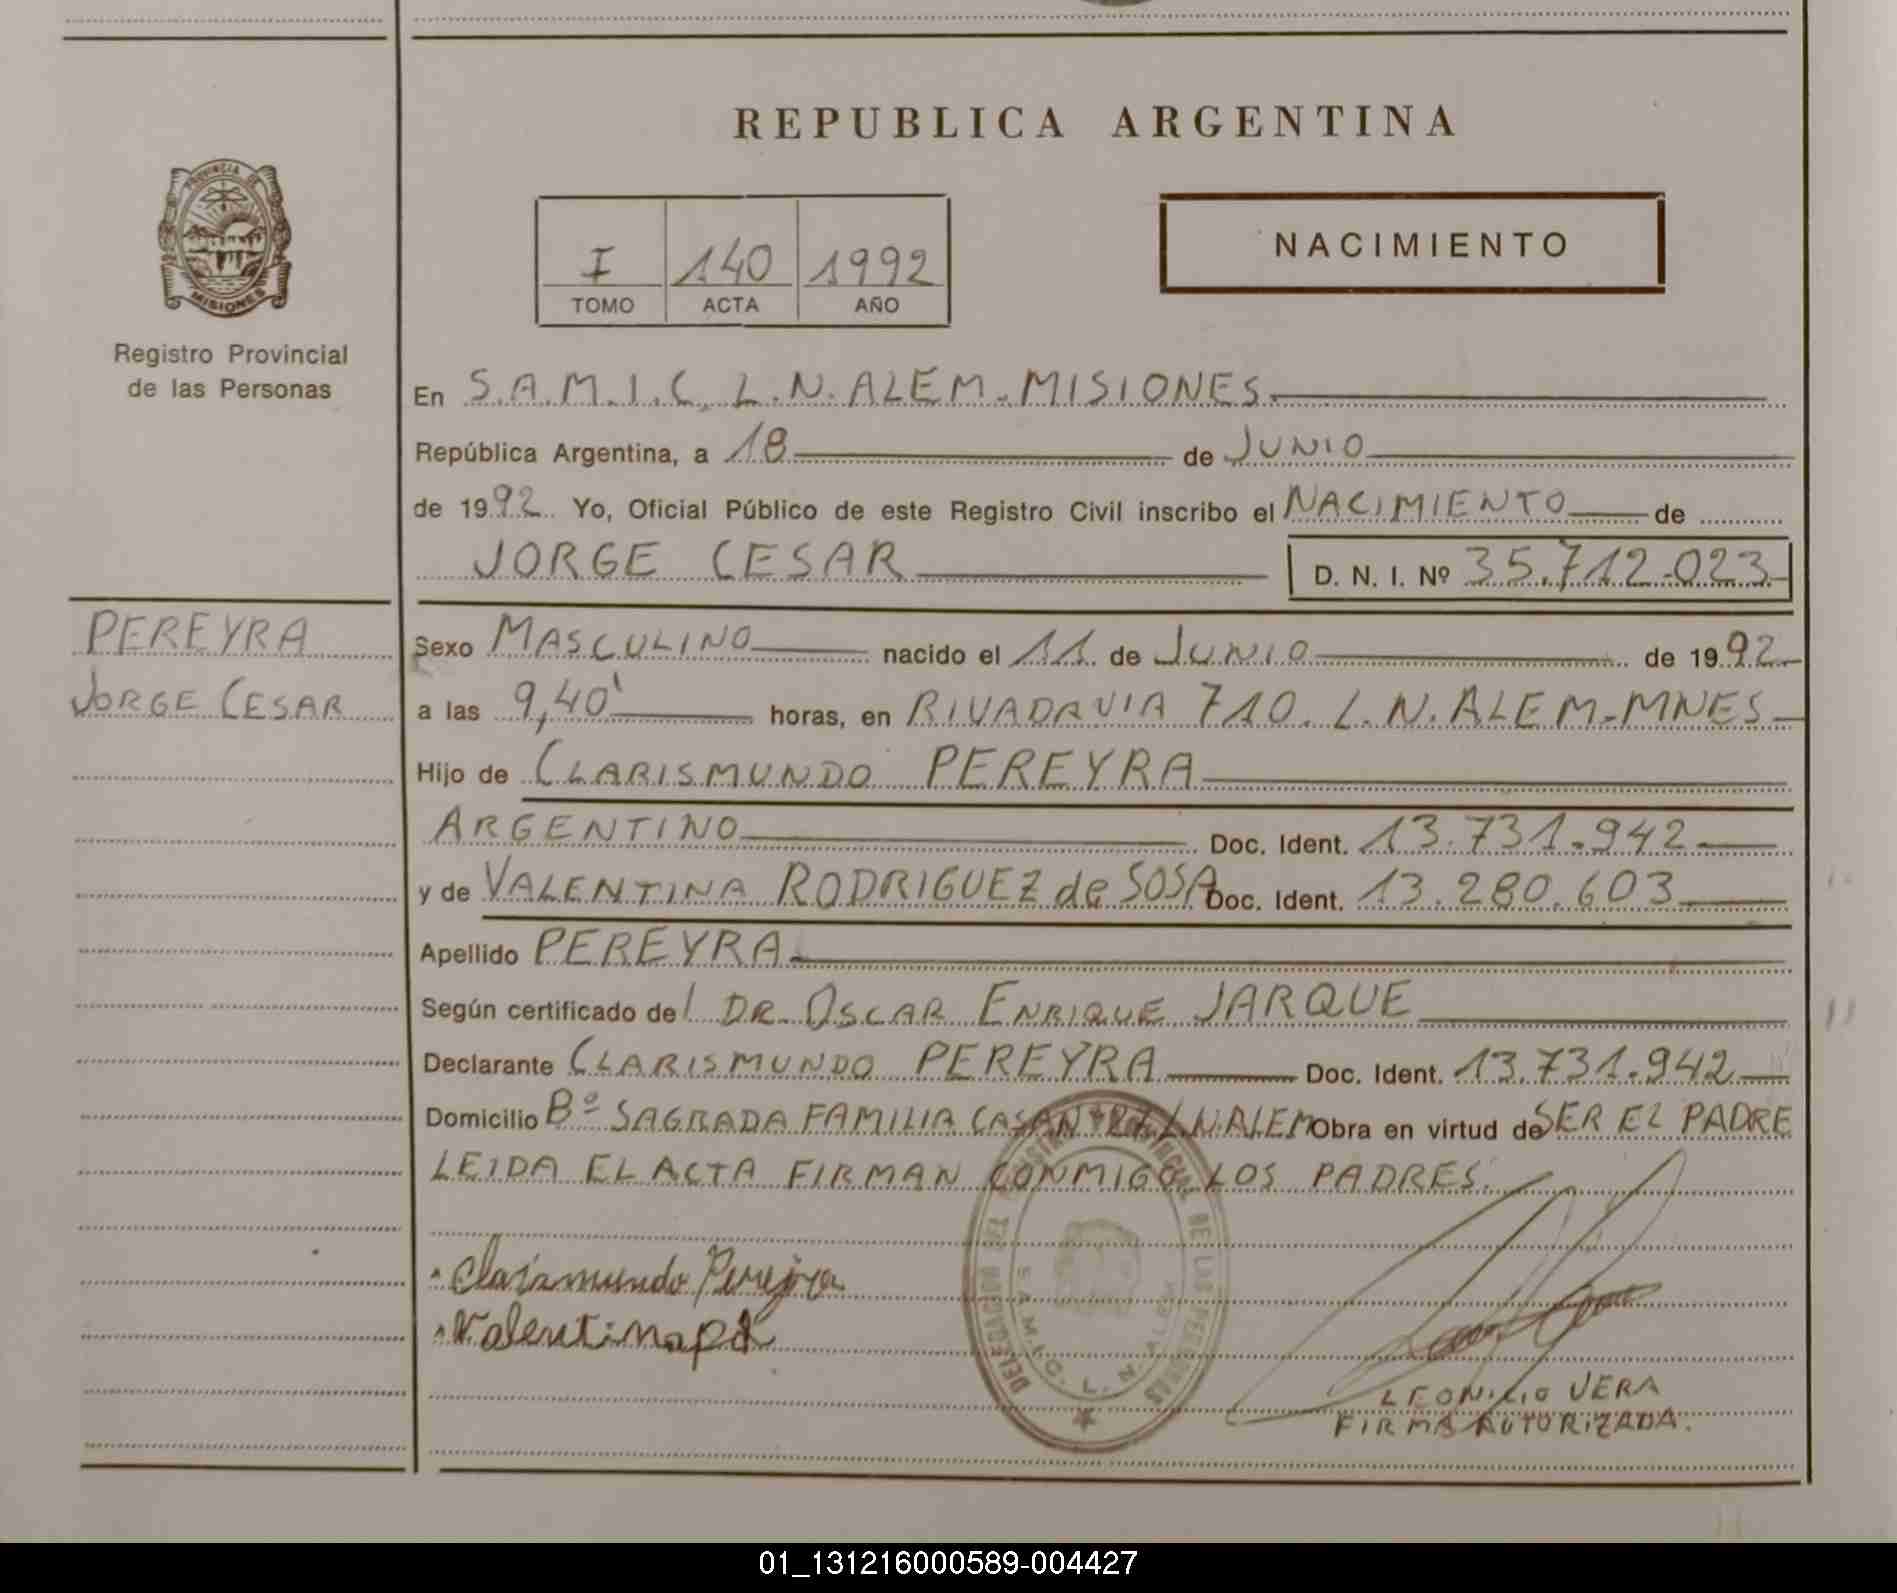 REPUBLICA ARGENTINA
PROVINCIA DE
MISIONES
Registro Provincial
de las Personas
I 140 1992
TOMO ACTA AÑO
NACIMIENTO
En S.A.M.I.C. L.N.ALEM-MISIONES
República Argentina, a 18 de JUNIO
de 1992 Yo, Oficial Público de este Registro Civil inscribo el NACIMIENTO de
JORGE CESAR D. N. I. Nº 35.712.023
PEREYRA
JORGE CESAR
Sexo MASCULINO nacido el 11 de JUNIO de 1992
a las 9,40' horas, en RIVADAVIA 710. L.N.ALEM-MNES
Hijo de CLARISMUNDO PEREYRA
ARGENTINO Doc. Ident. 13.731.942
y de VALENTINA RODRIGUEZ de SOSA Doc. Ident. 13.280.603
Apellido PEREYRA
Según certificado del DR. OSCAR ENRIQUE JARQUE
Declarante CLARISMUNDO PEREYRA Doc. Ident. 13.731.942
Domicilio Bº SAGRADA FAMILIA CASA L.N.ALEM Obra en virtud de SER EL PADRE
LEIDA EL ACTA FIRMAN CONMIGO LOS PADRES.
Clarismundo Pereyra
Valentina
DE LAS PERSONAS
S.A.M.I.C. L. N. ALEM
LEONICIO VERA
FIRMA AUTORIZADA.
01_131216000589-004427